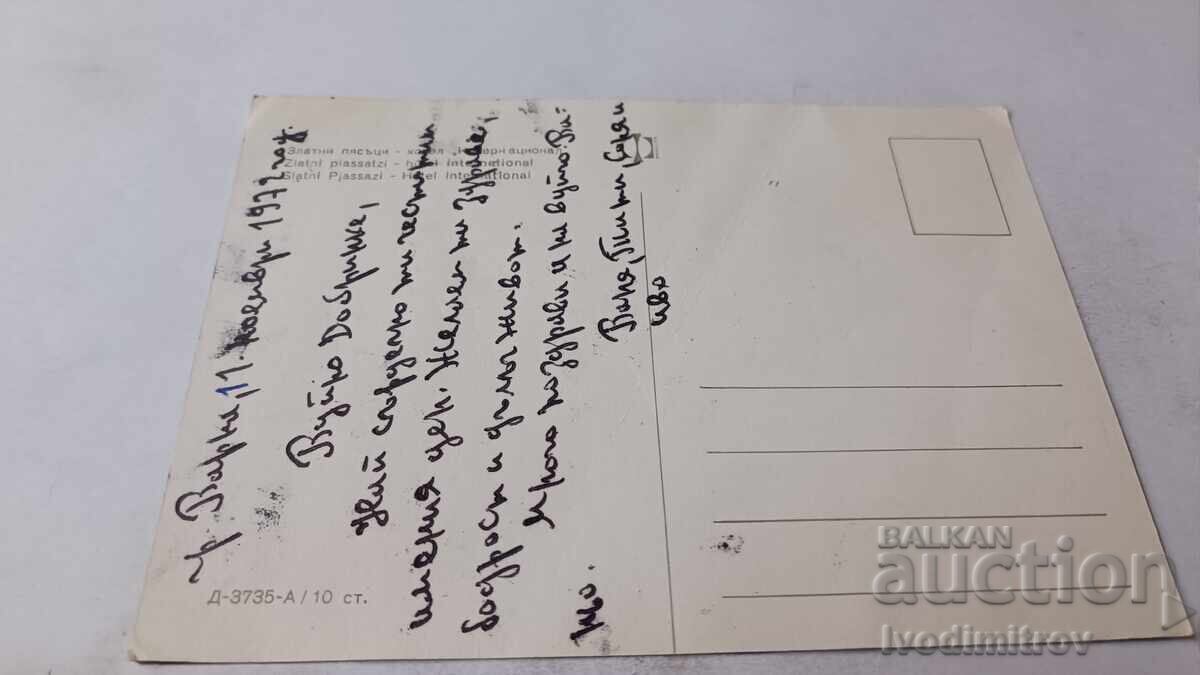 Златни пясъци - хотел Интернационал
Zlatni piassatzi - hotel International
Slatni Pjassazi - Hotel International
гр. Варна, 11. ноември 1972 год.
Вуйчо Добринке,
Най сърдечно ти честитим
имения ден. Желаем ти здраве,
бодрост и дълъг живот.
Много поздрави и на вуйчо Ви-
Ваня, Пепи,
Иво
Д-3735-А / 10 ст.
BALKAN
auction
Ivodimitrov